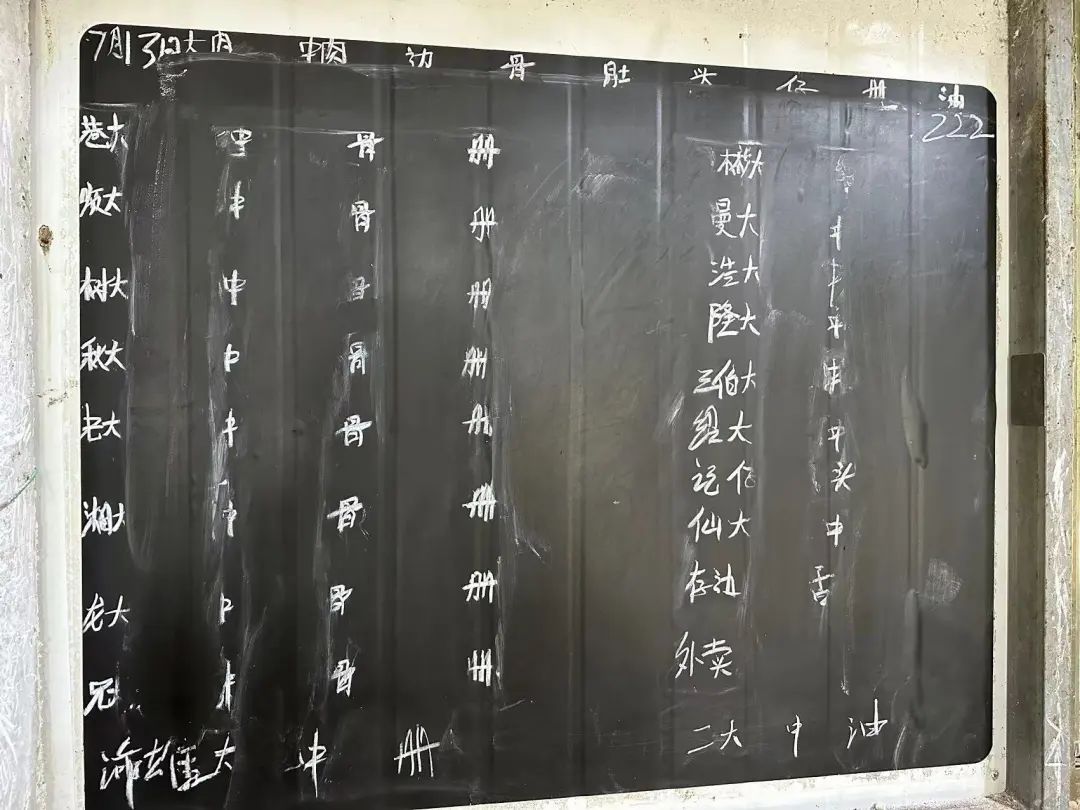 7月13日大肉 中肉 边 骨 肚 头 仔 册 油
222
港大 中 骨 册
顺大 中 骨 册
树大 中 骨 册
秋大 中 骨 册
老大 中 骨 册
湘大 中 骨 册
龙大 中 骨 册
兄 中 骨 册
大 中 册
彬大
曼大 中
浩大 中
隆大 中
三伯大 中
绍大 中
记仔 头
仙大 中
存边 舌
外卖
二大 中 油